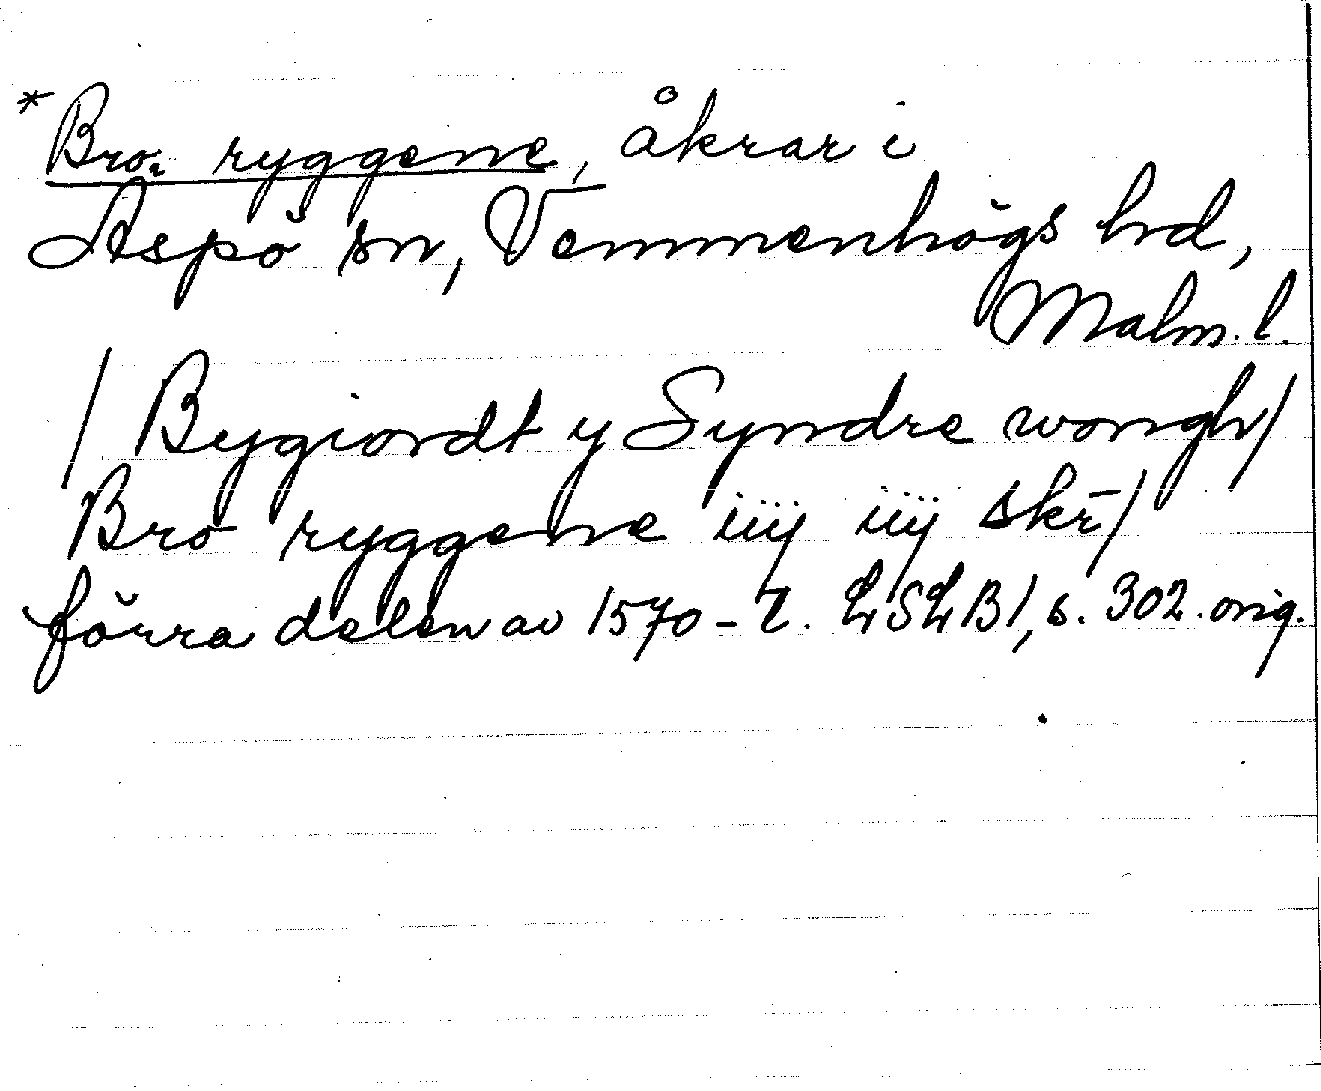 * Bro. ryggene, åkrar i
Äspö sn, Vemmenhögs hd,
Malm. l.
/ Bygiordt y Syndre wongh/
Bro ryggene iiij iiij skr̄/
förra delen av 1570-t. LSLB1, s. 302. orig.